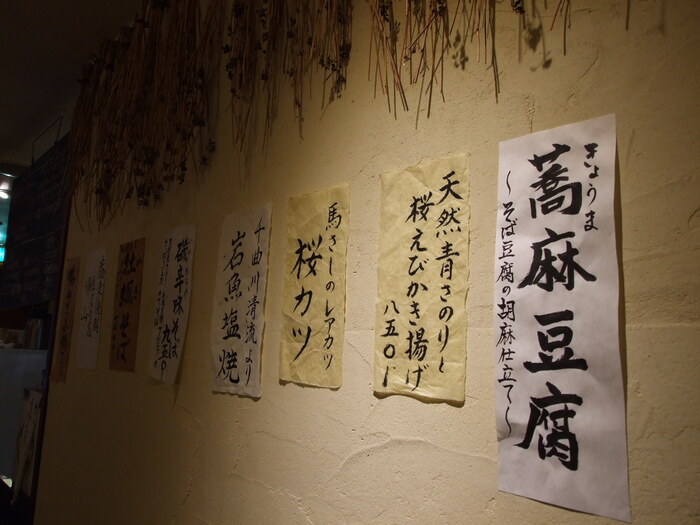 きょうま
蕎麻豆腐
〜そば豆腐の胡麻仕立て〜
天然青さのりと
桜えびかき揚げ
八五〇円
馬さしのレアカツ
桜カツ
千曲川清流より
岩魚塩焼
磯辛味そば
九五〇
牡蠣そば